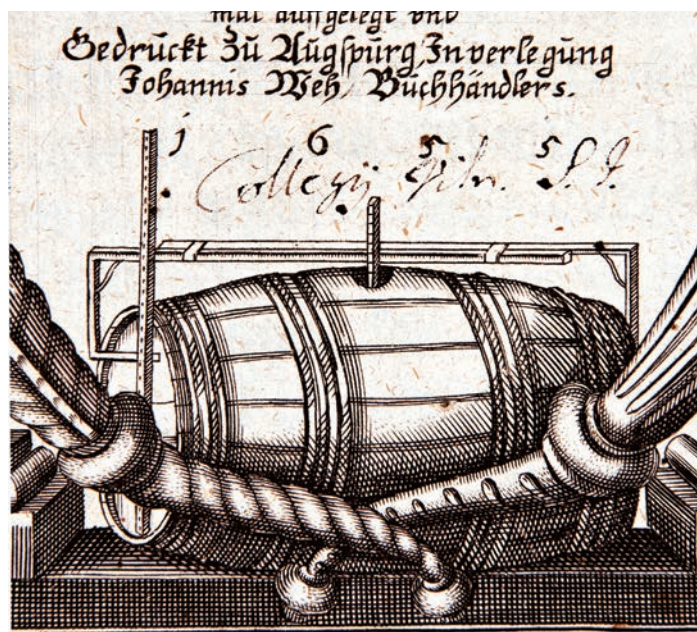 mal auffgelegt vnd
Gedruckt Zu Augſpurg, In verlegung
Johannis Weh, Buchhändlers.
1 6 5 5
Collegij Viln. S. J.